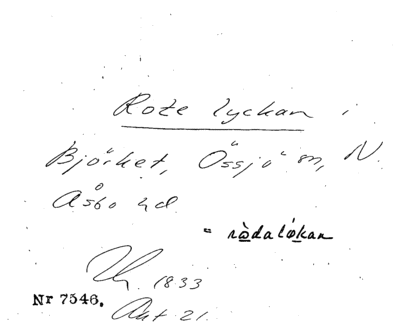 Rote lyckan i
Björket, Össjö sn, N.
Åsbo hd
= rò̱dalẏ́kan
1833
Nr 7546.
Akt 21